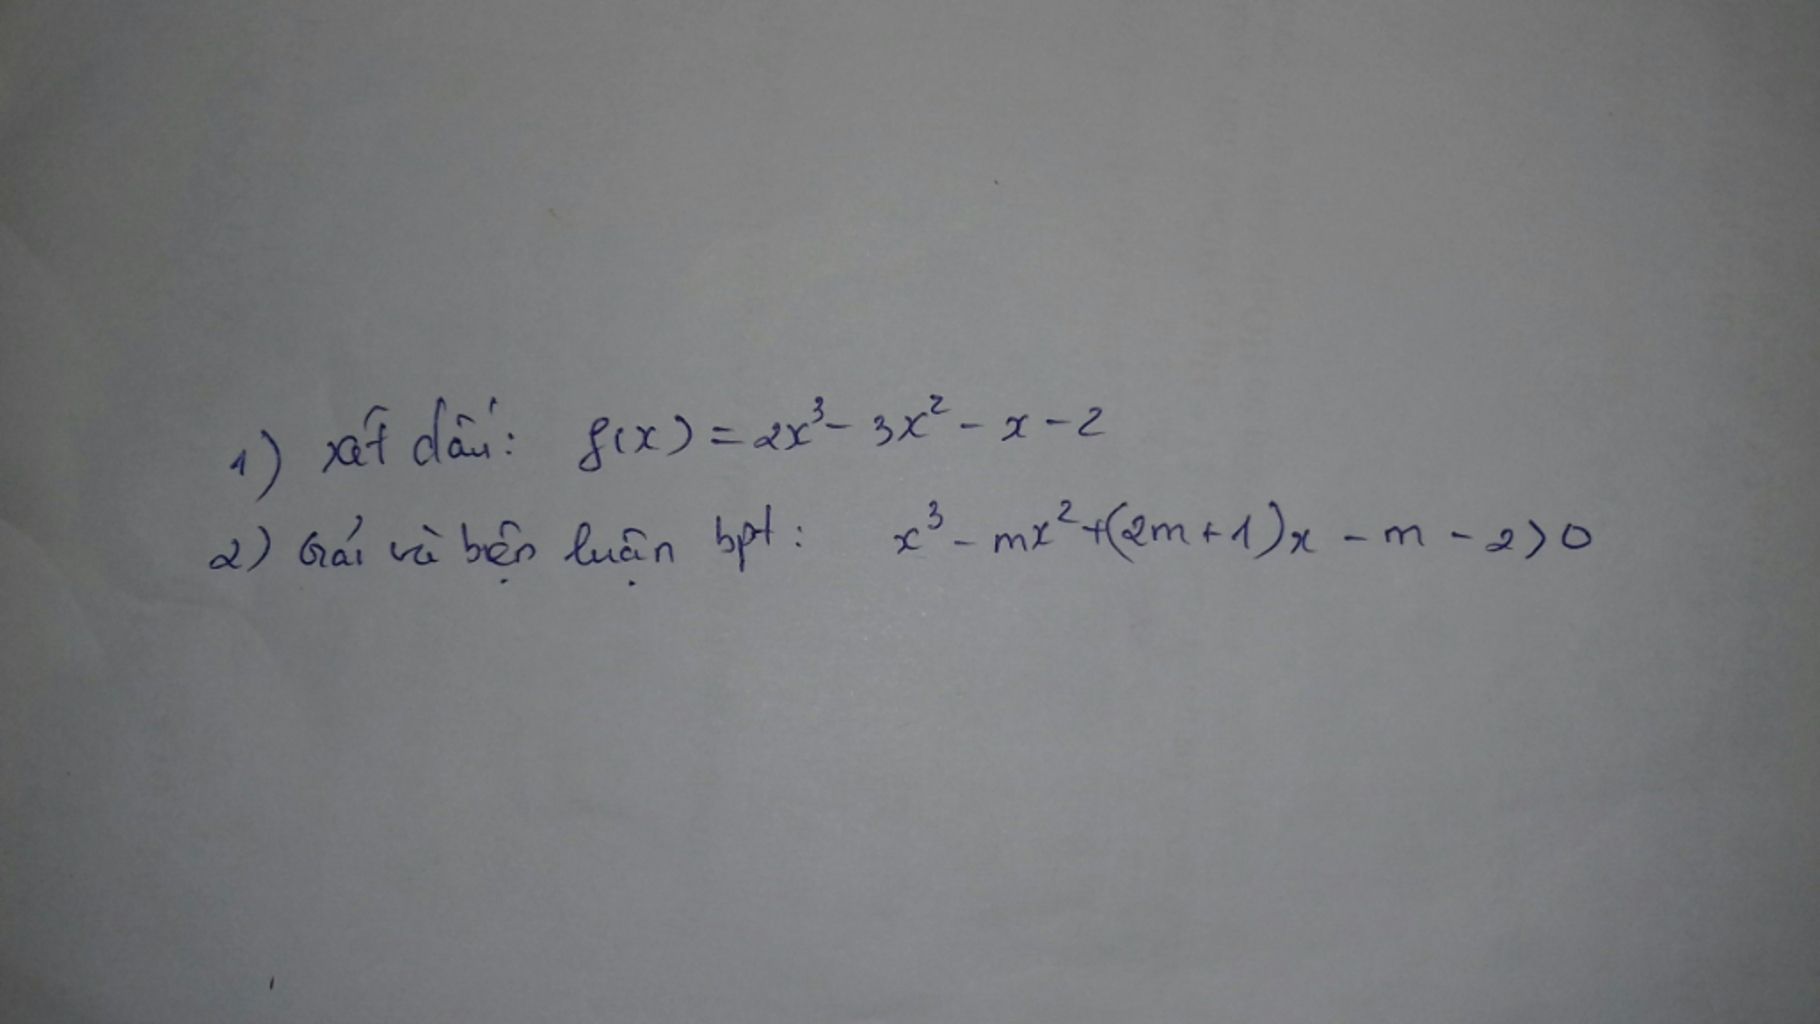 1) xét dấu: f(x) = 2x³ - 3x² - x - 2
2) Giải và biện luận bpt: x³ - mx² + (2m + 1)x - m - 2 > 0